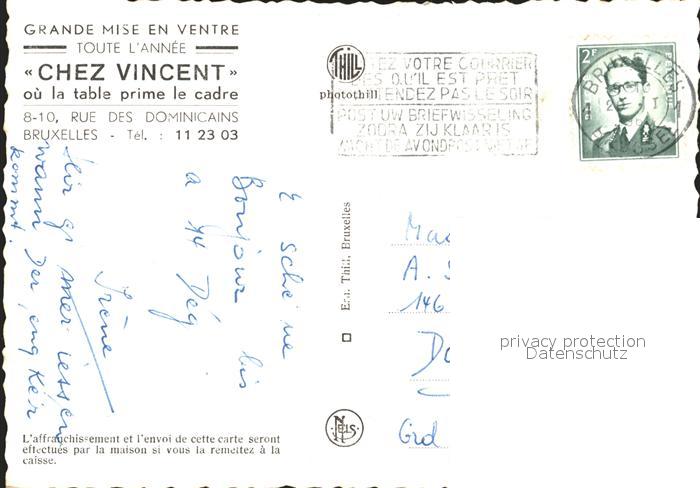 GRANDE MISE EN VENTRE
TOUTE L'ANNÉE
« CHEZ VINCENT »
où la table prime le cadre
8-10, RUE DES DOMINICAINS
BRUXELLES - Tél. : 11 23 03
THILL
photothill
EZ VOTRE COURRIER
QU'IL EST PRET
TENDEZ PAS LE SOIR
POST UW BRIEFWISSELING
ZODRA ZIJ KLAAR IS
WACHT DE AVONDPOST NIET AF
2F
BRUXELLES
BRUSSEL
E schéine
Bonjour bis
a 14 Deg
Irène
Hir gi mer iessen
wann Der eng Kéir
kommt.
Ern. Thill, Bruxelles
A.
146
Grd
NELS
privacy protection
Datenschutz
L'affranchissement et l'envoi de cette carte seront
effectués par la maison si vous la remettez à la
caisse.